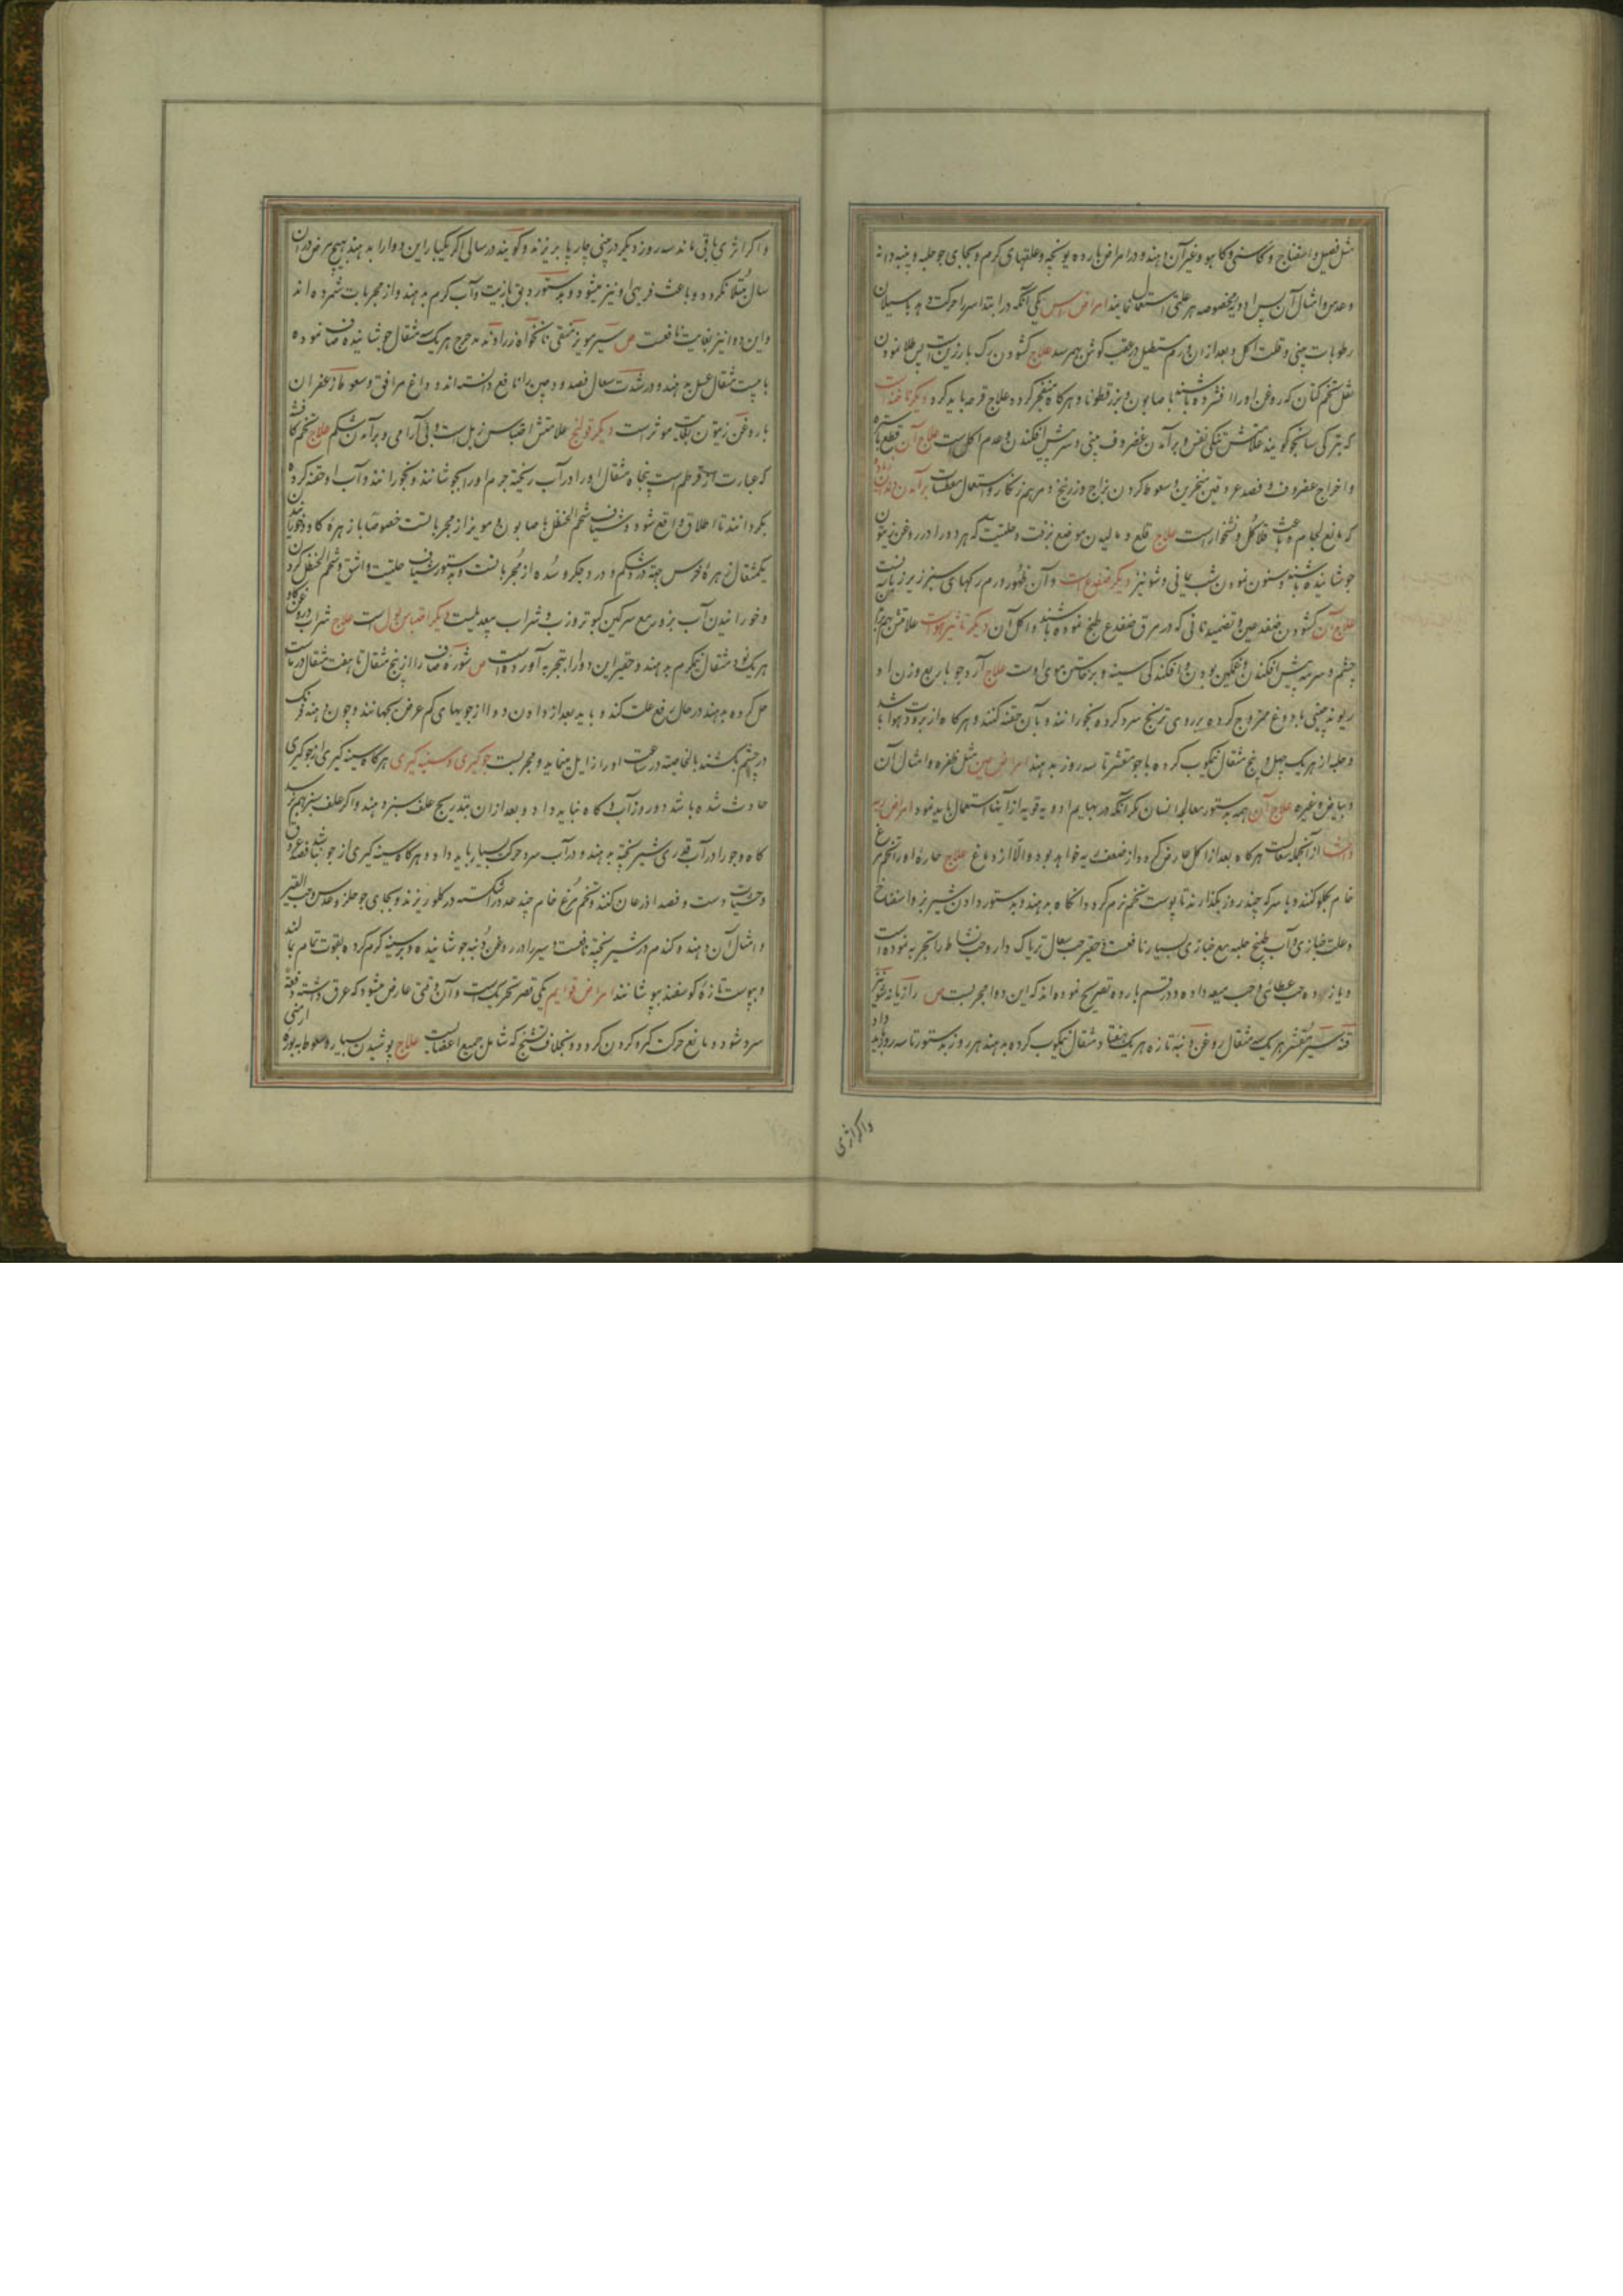 مثل فصیل و اسفناج و کاسنی و کاهو و غیر آن دهند و در امراض بارده یونجه و علفهای گرم و بجای جو حلبه و پنبه دانه
و عدس و امثال آن پس ادویه مخصوصه هر علتی استعمال نمایند امراض راس یکی آنکه در ابتدا سر را حرکت دهد با سیلان
رطوبات بینی و قلت اکل و بعد از آن ورم مستطیل در عقب گوش بهم رسد علاج کشودن رک بارزین است پس طلا نمودن
ثفل تخم کتان که روغن او را افشرده باشند با صابون و بزرقطونا و هر کاه منفجر کردد علاج قرحه باید کرد دیگر
که بترکی ساقجو کویند علامتش تنکی نفس و برآمدن غضروف بینی و سر پیش افکندن و عدم اکل است علاج آن قطع
و اخراج غضروف و فصد عروقین منخرین و سعوط کردن بزاج و زرنیخ و مرهم زنکار و استعمال معطسات برآمدن
که مانع لجام و باعث قلا کل و نشخوار است علاج قلع و مالیدن موضع بزفت و حلتیت که هر دو را در روغن زیتون
جوشانیده باشند و سنون نمودن شب یمانی و شونیز دیگر ضفدع است و آن ظهور ورم رکهای سبز زیر زبانست
علاج آن کشودن ضفدعین و تضمید نانی که در مرق ضفدع طبخ نموده باشند و اکل آن دیگر تاثیر هواست علامتش
چشم و سر به پیش افکندن و غمکین بودن و افکندکی سینه و برخاستن موی اوست علاج آرد جو با ربع وزن او
ریوند چینی با دوغ ممزوج کرده بر روی ترنج سرد کرده بخورانند و بآن حقنه کنند و هر کاه از برودت هوا باشد
و حلبه از هر یک چهل و پنج مثقال نیمکوب کرده با جو مقشر تا سه روز بدهند امراض عین مثل ظفره و امثال آن
و بیاض و غیره علاج آن همه بدستور معالجه انسان مکر آنکه در بهایم ادویه قویه از آنها استعمال باید نمود امراض ریه
از آنجمله سعالست هر کاه بعد از اکل عارض کردد از ضعف ریه خواهد بود و الا از دماغ علاج حاره او را تخم مرغ
خام بکلو کنند و با سرکه چند روز بکذارند تا پوست تخم نرم کردد آنکاه بدهند و بدستور دادن شیر بز و اسفناخ
و علت خبازی و آب طبیخ حلبه مع خبازی بسیار نافعست و حقیر حب سعال تریاک دار و حب نشاط را تجربه نموده است
و یازده حب عطائی و حب میعه داده و در قسم بارده تصریح نموده اند که این دوا مجربست ص رازیانه شونیز
قنه سیر مقشر هر یک سه مثقال روغن دنبه تازه هر یک هفتاد مثقال نیمکوب کرده بدهند هر روز بدستور تا سه روز
و اکر اثری
و اکر اثری باقی ماند سه روز دیکر در بینی چارپا بریزند و کویند در سالی اکر یکبار این دوا را بدهند بهیچ مرض در آن
سال مبتلا نکردد و باعث فربهی او نیز میشود و بدستور دبق با زیت و آب کرم بدهند و از مجربات شمرده اند
و این دوا نیز بغایت نافعست ص سیر مویز منقی نانخواه زراوند مدحرج هر یک سه مثقال جوشانیده صاف نموده
با بیست مثقال عسل بدهند و در شدت سعال فصد و دجین را نافع دانسته اند و داغ مرافق و سعوط زعفران
با روغن زیتون بغایت موثر است دیکر قولنج علامتش احتباس زبل است و بی آرامی و برآمدن شکم علاج تخم
که عبارت از قرطم است پنجاه مثقال او را در آب ریخته جرم او را بجوشانند و بخورانند و آب او حقنه کرده
بکردانند تا اطلاق واقع شود و شیاف شحم الحنظل با صابون و مویز از مجرباتست خصوصا با زهره کاو
یکمثقال زهره خرس جهت درد شکم و درد جکر و سده از مجرباتست و بدستور شیاف حلتیت و اشق و شحم الحنظل
و خورانیدن آب بزور مع سرکین کبوتر و زب و شراب بیعدیلست دیکر احتباس بول است علاج شراب
هر یک نود مثقال نیمکرم بدهند و حقیر این دوا را بتجربه آورده است ص شوره صاف را از پنج مثقال تا هفت مثقال در ماست
حل کرده بدهند در حال رفع علت کند و باید بعد از دادن دوا از جویهای کم عرض بجهانند و چون دهنه فرنک
در چشم بکشند بالخاصیه در ساعت او را زایل مینماید و مجربست جوکیری و سینه کیری هر کاه سینه کیری از جوکیری
حادث شده باشد دو روز آب و کاه نباید داد و بعد از آن بتدریج علف سبز دهند و اکر علف سبز بهم نرسد
کاه و جو را در آب قدری شیر پخته بدهند و در آب سرد حرکت بسیار باید داد و هر کاه سینه کیری از جو نباشد فصد عروق
و حشیات دست و فصد اذرعان کنند و تخم مرغ خام چند عدد شکسته در کلو ریزند و بجای جو جلز و عدس و حب القیر
و امثال آن دهند و کندم در شیر پخته نافعست و سیر را در روغن دنبه جوشانیده و بر سینه کرم کرده بقوت تمام بمالند
و بپوست تازه کوسفند بپوشانند امراض قوایم یکی قصر تحریکست و آن وقتی عارض میشود که عرق داشته دفعة
سرد شود و مانع حرکت کره کردن کردد و بخلاف تشنج که شامل جمیع اعضاست علاج پوشیدن بسیار و سعوط به بوره ارمنی